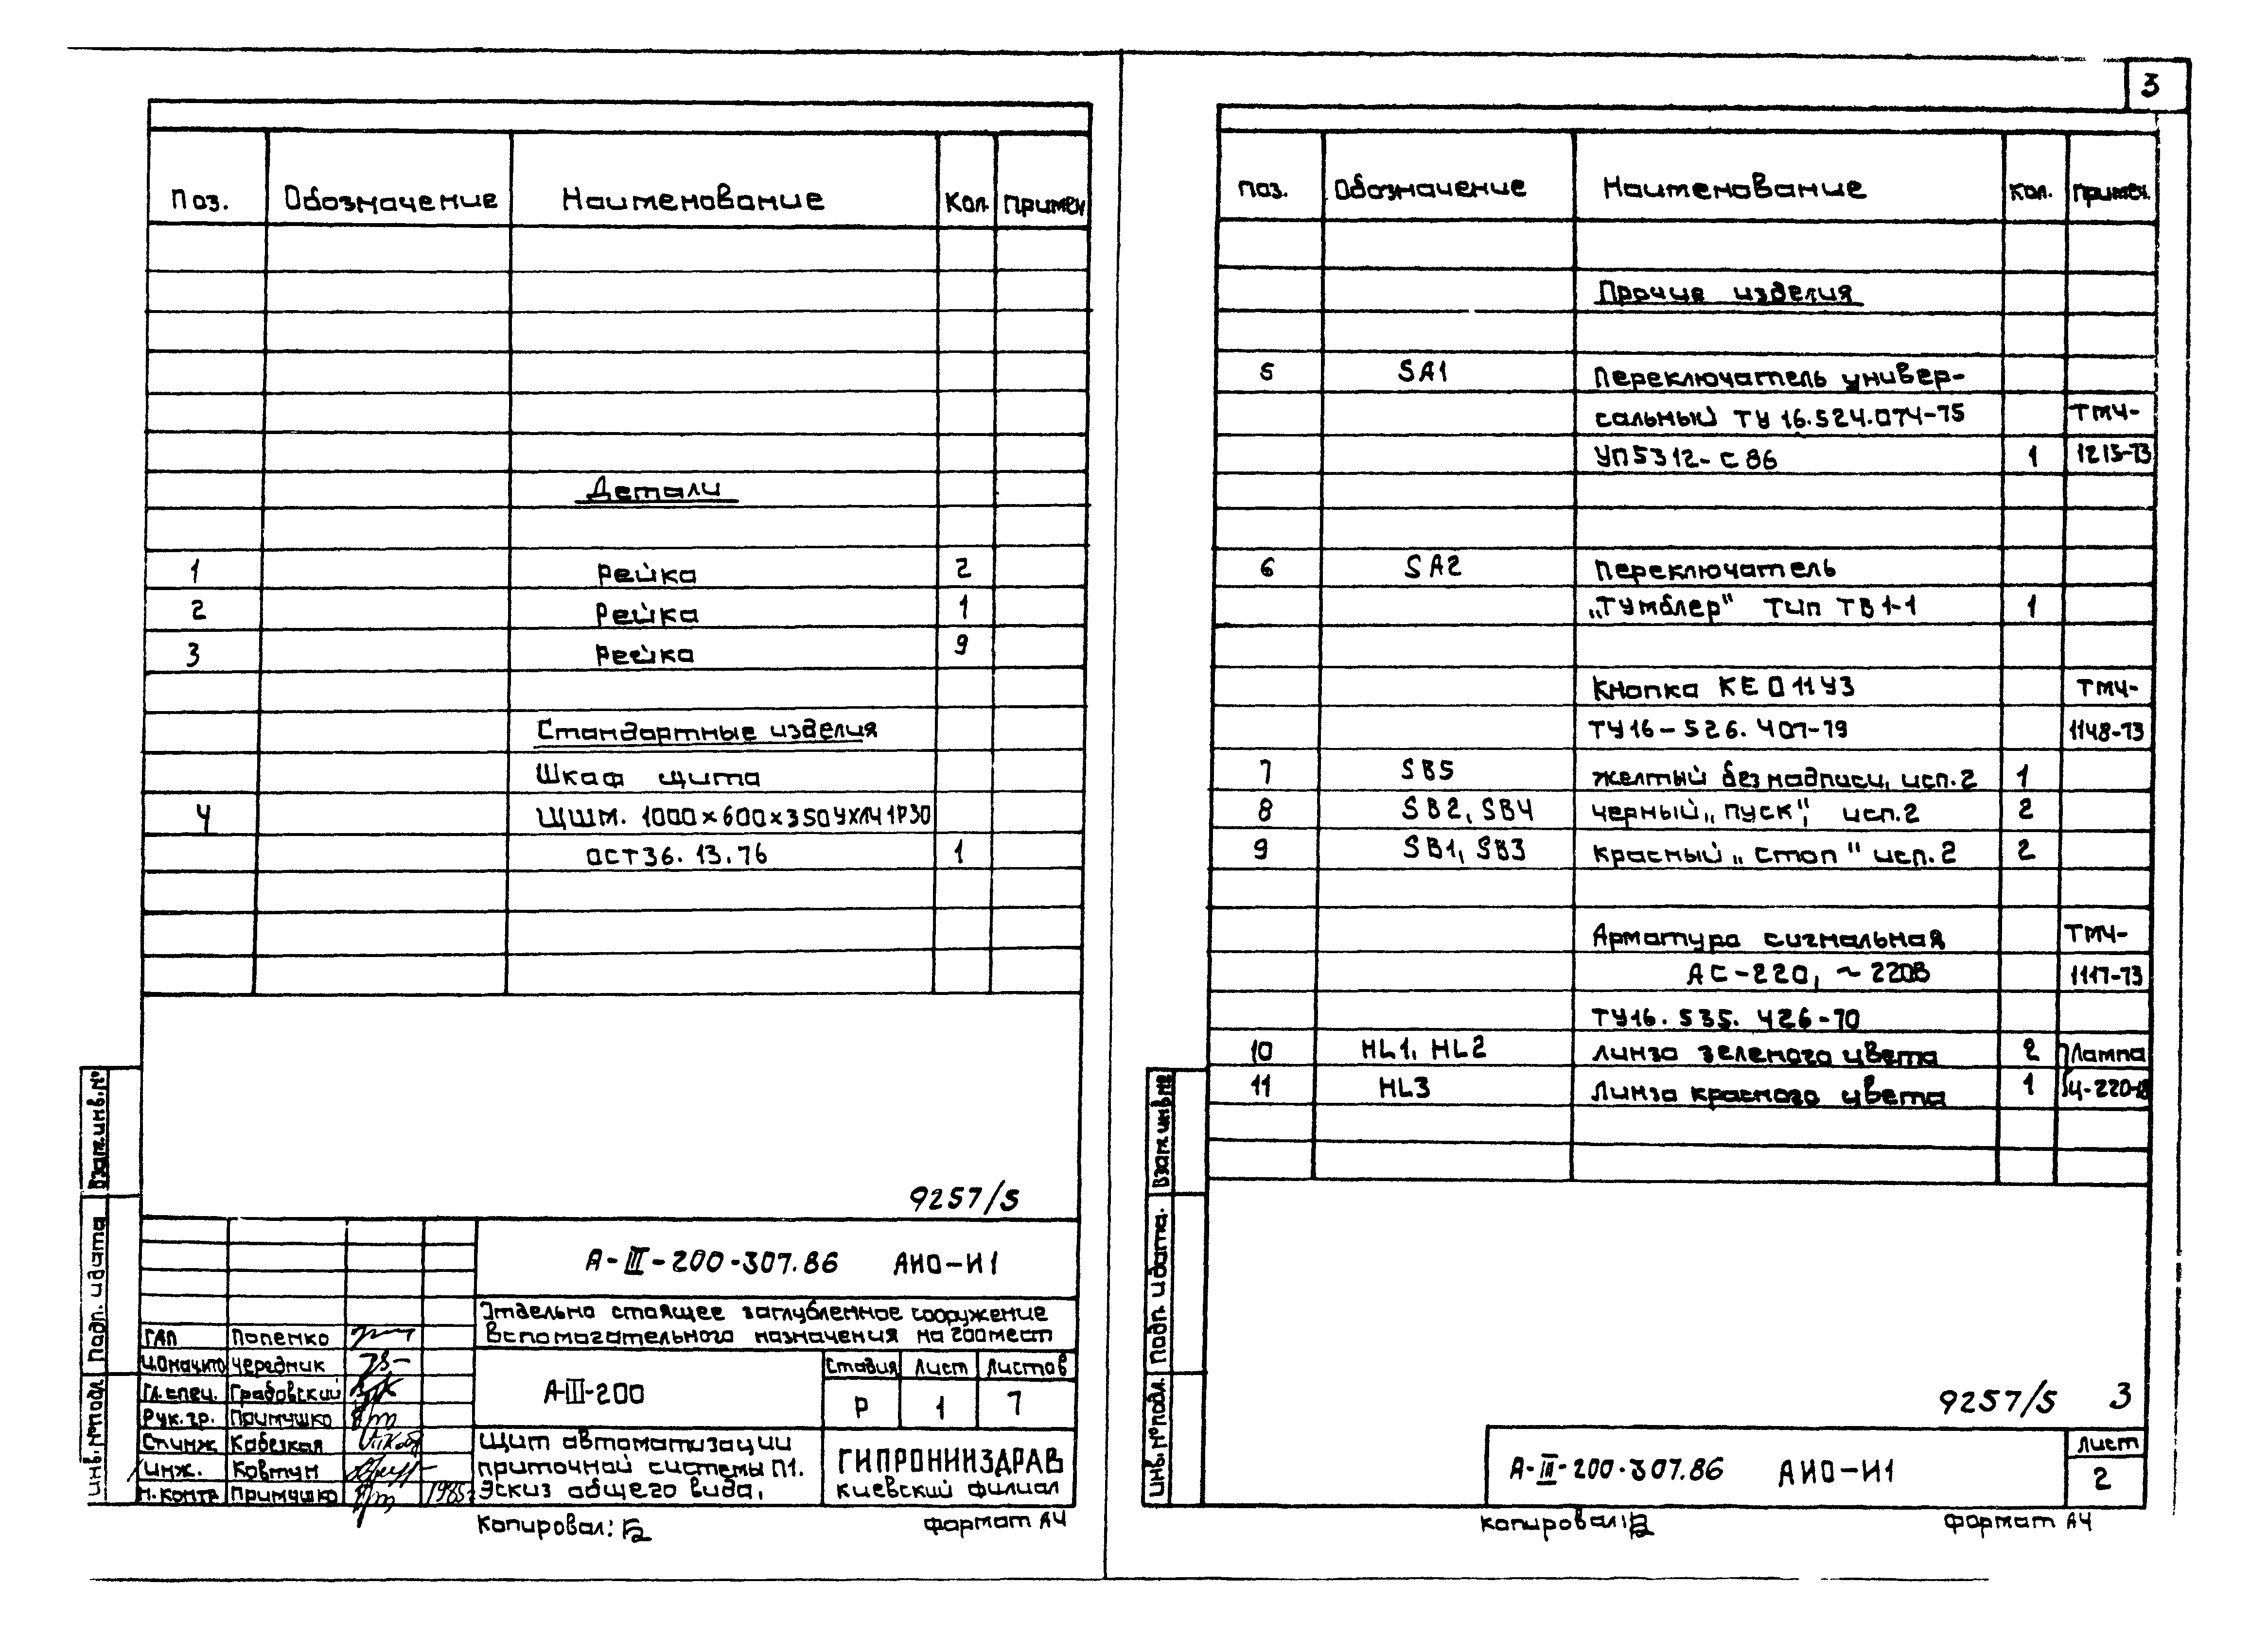 3
Поз. Обозначение Наименование Кол. Примен
Детали
1 Рейка 2
2 Рейка 1
3 Рейка 9
Стандартные изделия
Шкаф щита
4 ЩШМ. 1000×600×350УХЛ4 1Р30
ОСТ36.13.76 1
9257/5
А-III-200-307.86 АИО-И1
Отдельно стоящее заглубленное сооружение
вспомогательного назначения на 200мест
ГАП Попенко
Чередник
Гл.спец. Грабовский
Рук.гр. Примушко
Ст.инж Кобезкая
инж. Ковтун
Н.контр Примушко 1985г
А-III-200
Стадия Лист Листов
Р 1 7
Щит автоматизации
приточной системы П1.
Эскиз общего вида.
ГИПРОНИИЗДРАВ
киевский филиал
Инв.№подл. Подп. и дата Взам.инв.№
Копировал: Формат А4
поз. Обозначение Наименование Кол. Примеч.
Прочие изделия
5 SA1 Переключатель универ-
сальный ТУ 16.524.074-75 ТМ4-
УП5312-С86 1 1215-73
6 SA2 Переключатель
„Тумблер" Тип ТВ1-1 1
Кнопка КЕ 011У3 ТМ4-
ТУ16-526.407-79 1148-73
7 SB5 желтый без надписи, исп.2 1
8 SB2, SB4 черный „пуск", исп.2 2
9 SB1, SB3 красный „стоп" исп.2 2
Арматура сигнальная ТМ4-
АС-220, ~220В 1117-73
ТУ16.535.426-70
10 HL1, HL2 линза зеленого цвета 2 Лампа
11 HL3 линза красного цвета 1 Ц-220-10
9257/5 3
А-III-200-307.86 АИО-И1
Лист
2
Инв.№подл. Подп. и дата. Взам инв№
Копировал: Формат А4